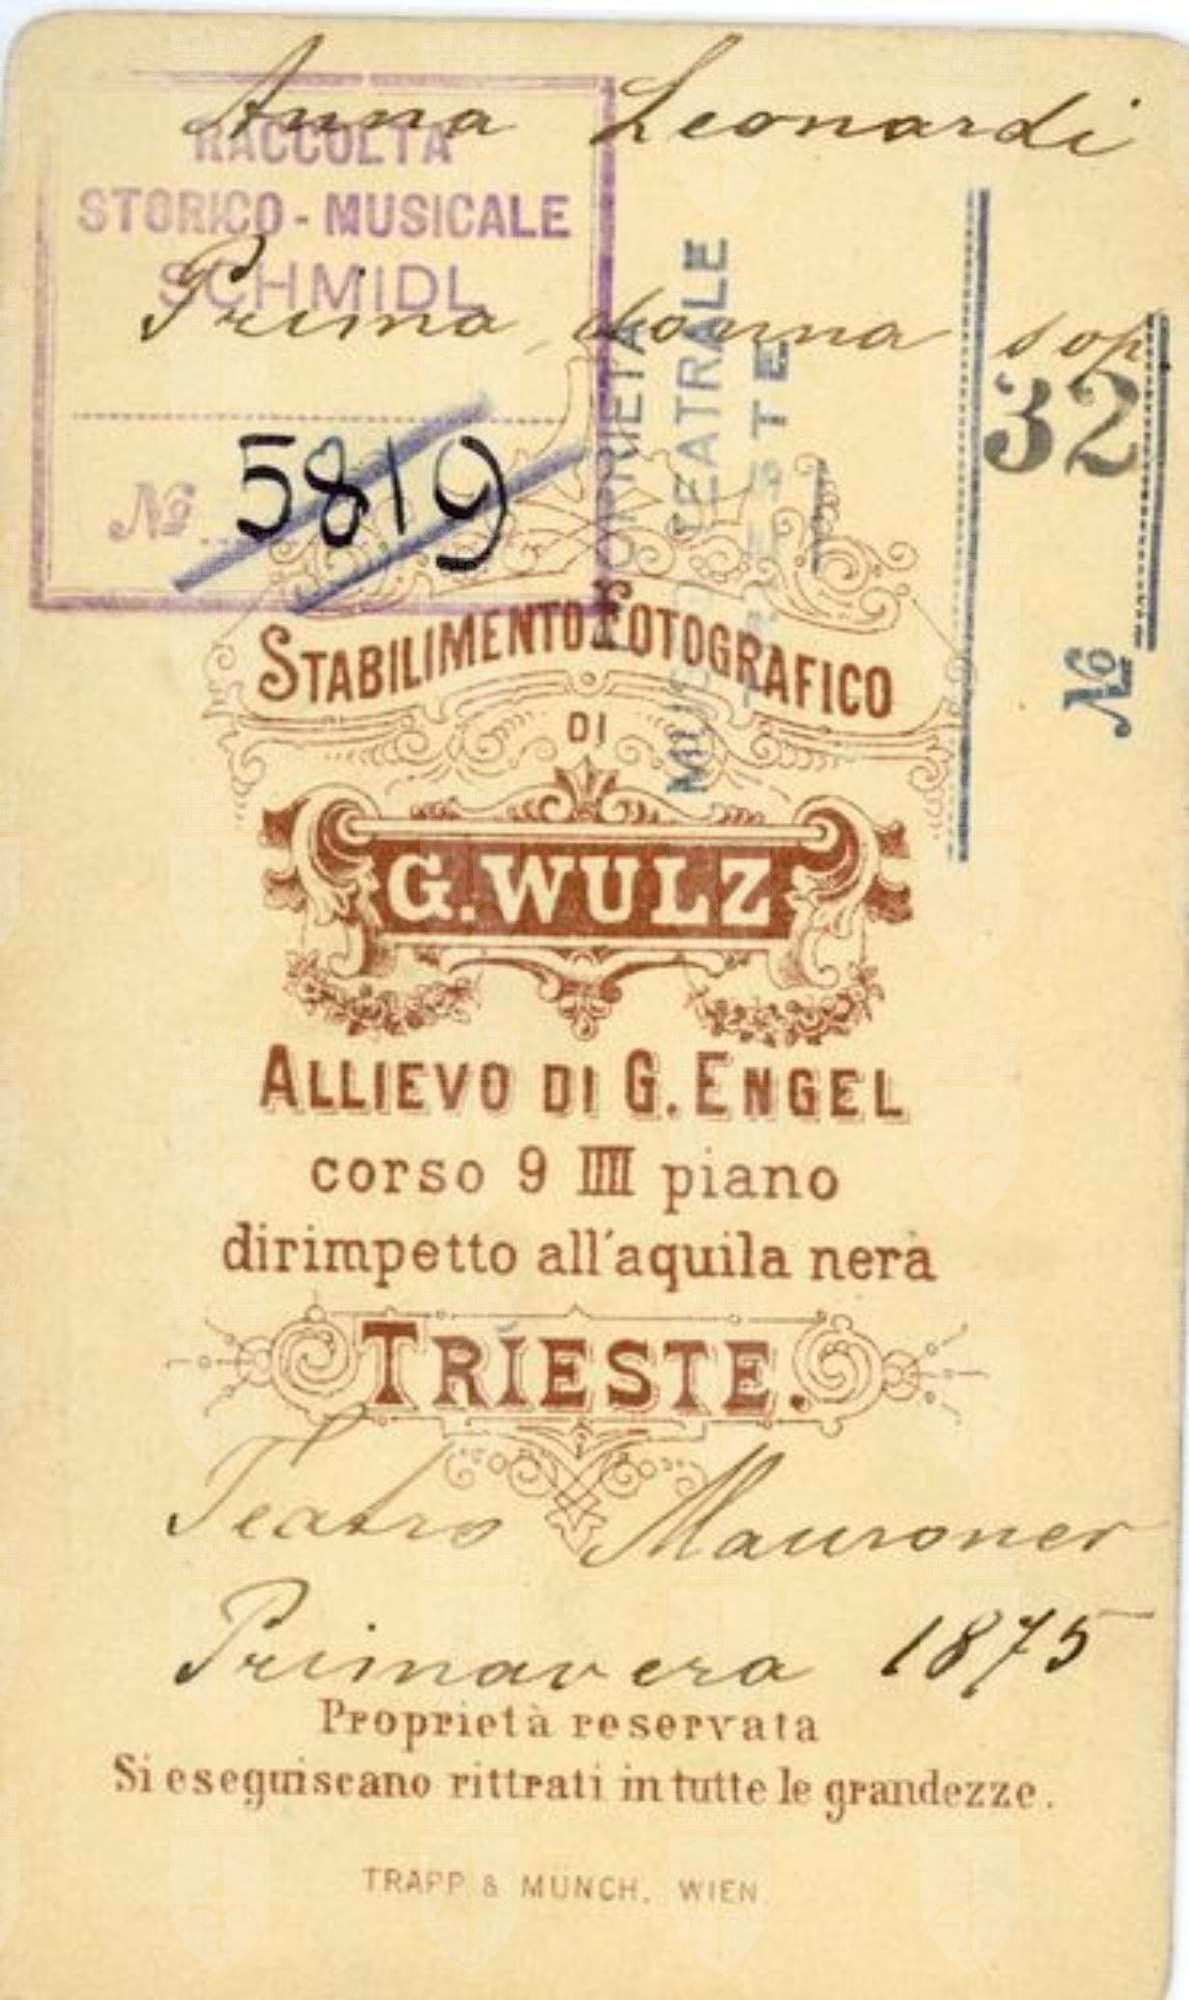 Anna Leonardi
RACCOLTA
STORICO - MUSICALE
SCHMIDL
Prima donna sop
№ 5819
PROPRIETÀ
MUSEO TEATRALE
TRIESTE
№ 32
STABILIMENTO FOTOGRAFICO
DI
G. WULZ
ALLIEVO DI G. ENGEL
corso 9 IIII piano
dirimpetto all'aquila nera
TRIESTE.
Teatro Mauroner
Primavera 1875
Proprietà reservata
Si eseguiscano rittrati in tutte le grandezze.
TRAPP & MÜNCH, WIEN